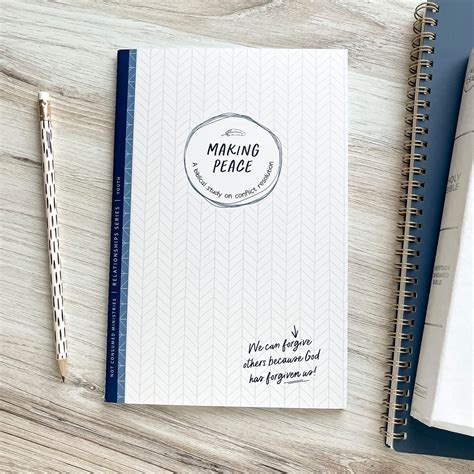 MAKING
PEACE
A biblical study on conflict resolution
We can forgive
others because God
has forgiven us!
NOT CONSUMED MINISTRIES | RELATIONSHIPS SERIES | YOUTH
HOLY BIBLE